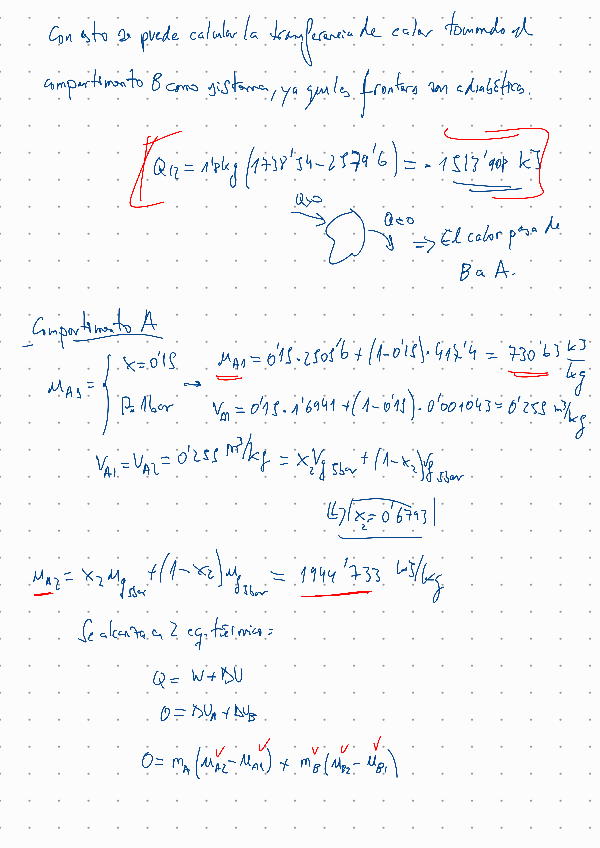 Con esto se puede calcular la transferencia de calor tomando el
compartimento B como sistema, ya que las fronteras son adiabáticas.
Q12 = 1'8kg (1738'54 - 2579'6) = - 1513'908 kJ
Q>0
Q<0
⇒ El calor pasa de
B a A.
Compartimento A
u_A1 = { x = 0'15
P = 1bar
→ u_A1 = 0'15 · 2505'6 + (1-0'15) · 417'4 = 730'63 kJ/kg
V_A1 = 0'15 · 1'6941 + (1-0'15) · 0'001043 = 0'255 m³/kg
V_A1 = V_A2 = 0'255 m³/kg = x₂ Vg 5bar + (1-x₂) Vf 5bar
↳ x₂ = 0'6793
u_A2 = x₂ ug 5bar + (1-x₂) uf 5bar = 1944'733 kJ/kg
Se alcanza en 2 eq. térmico:
Q = W + ΔU
0 = ΔU_A + ΔU_B
0 = m_A (u_A2 - u_A1) + m_B (u_B2 - u_B1)